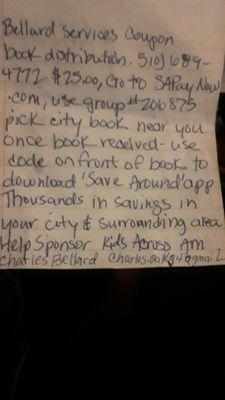 Bellard Services Coupon
book distribution. 510) 689-
4772 $25.00, Go to SAPay Now
.com, use group # 206875
pick city book near you
once book received - use
code on front of book to
download 'Save Around' app
Thousands in savings in
your city & surrounding area
Help Sponsor Kids Across Am
Charles Bellard Charles.